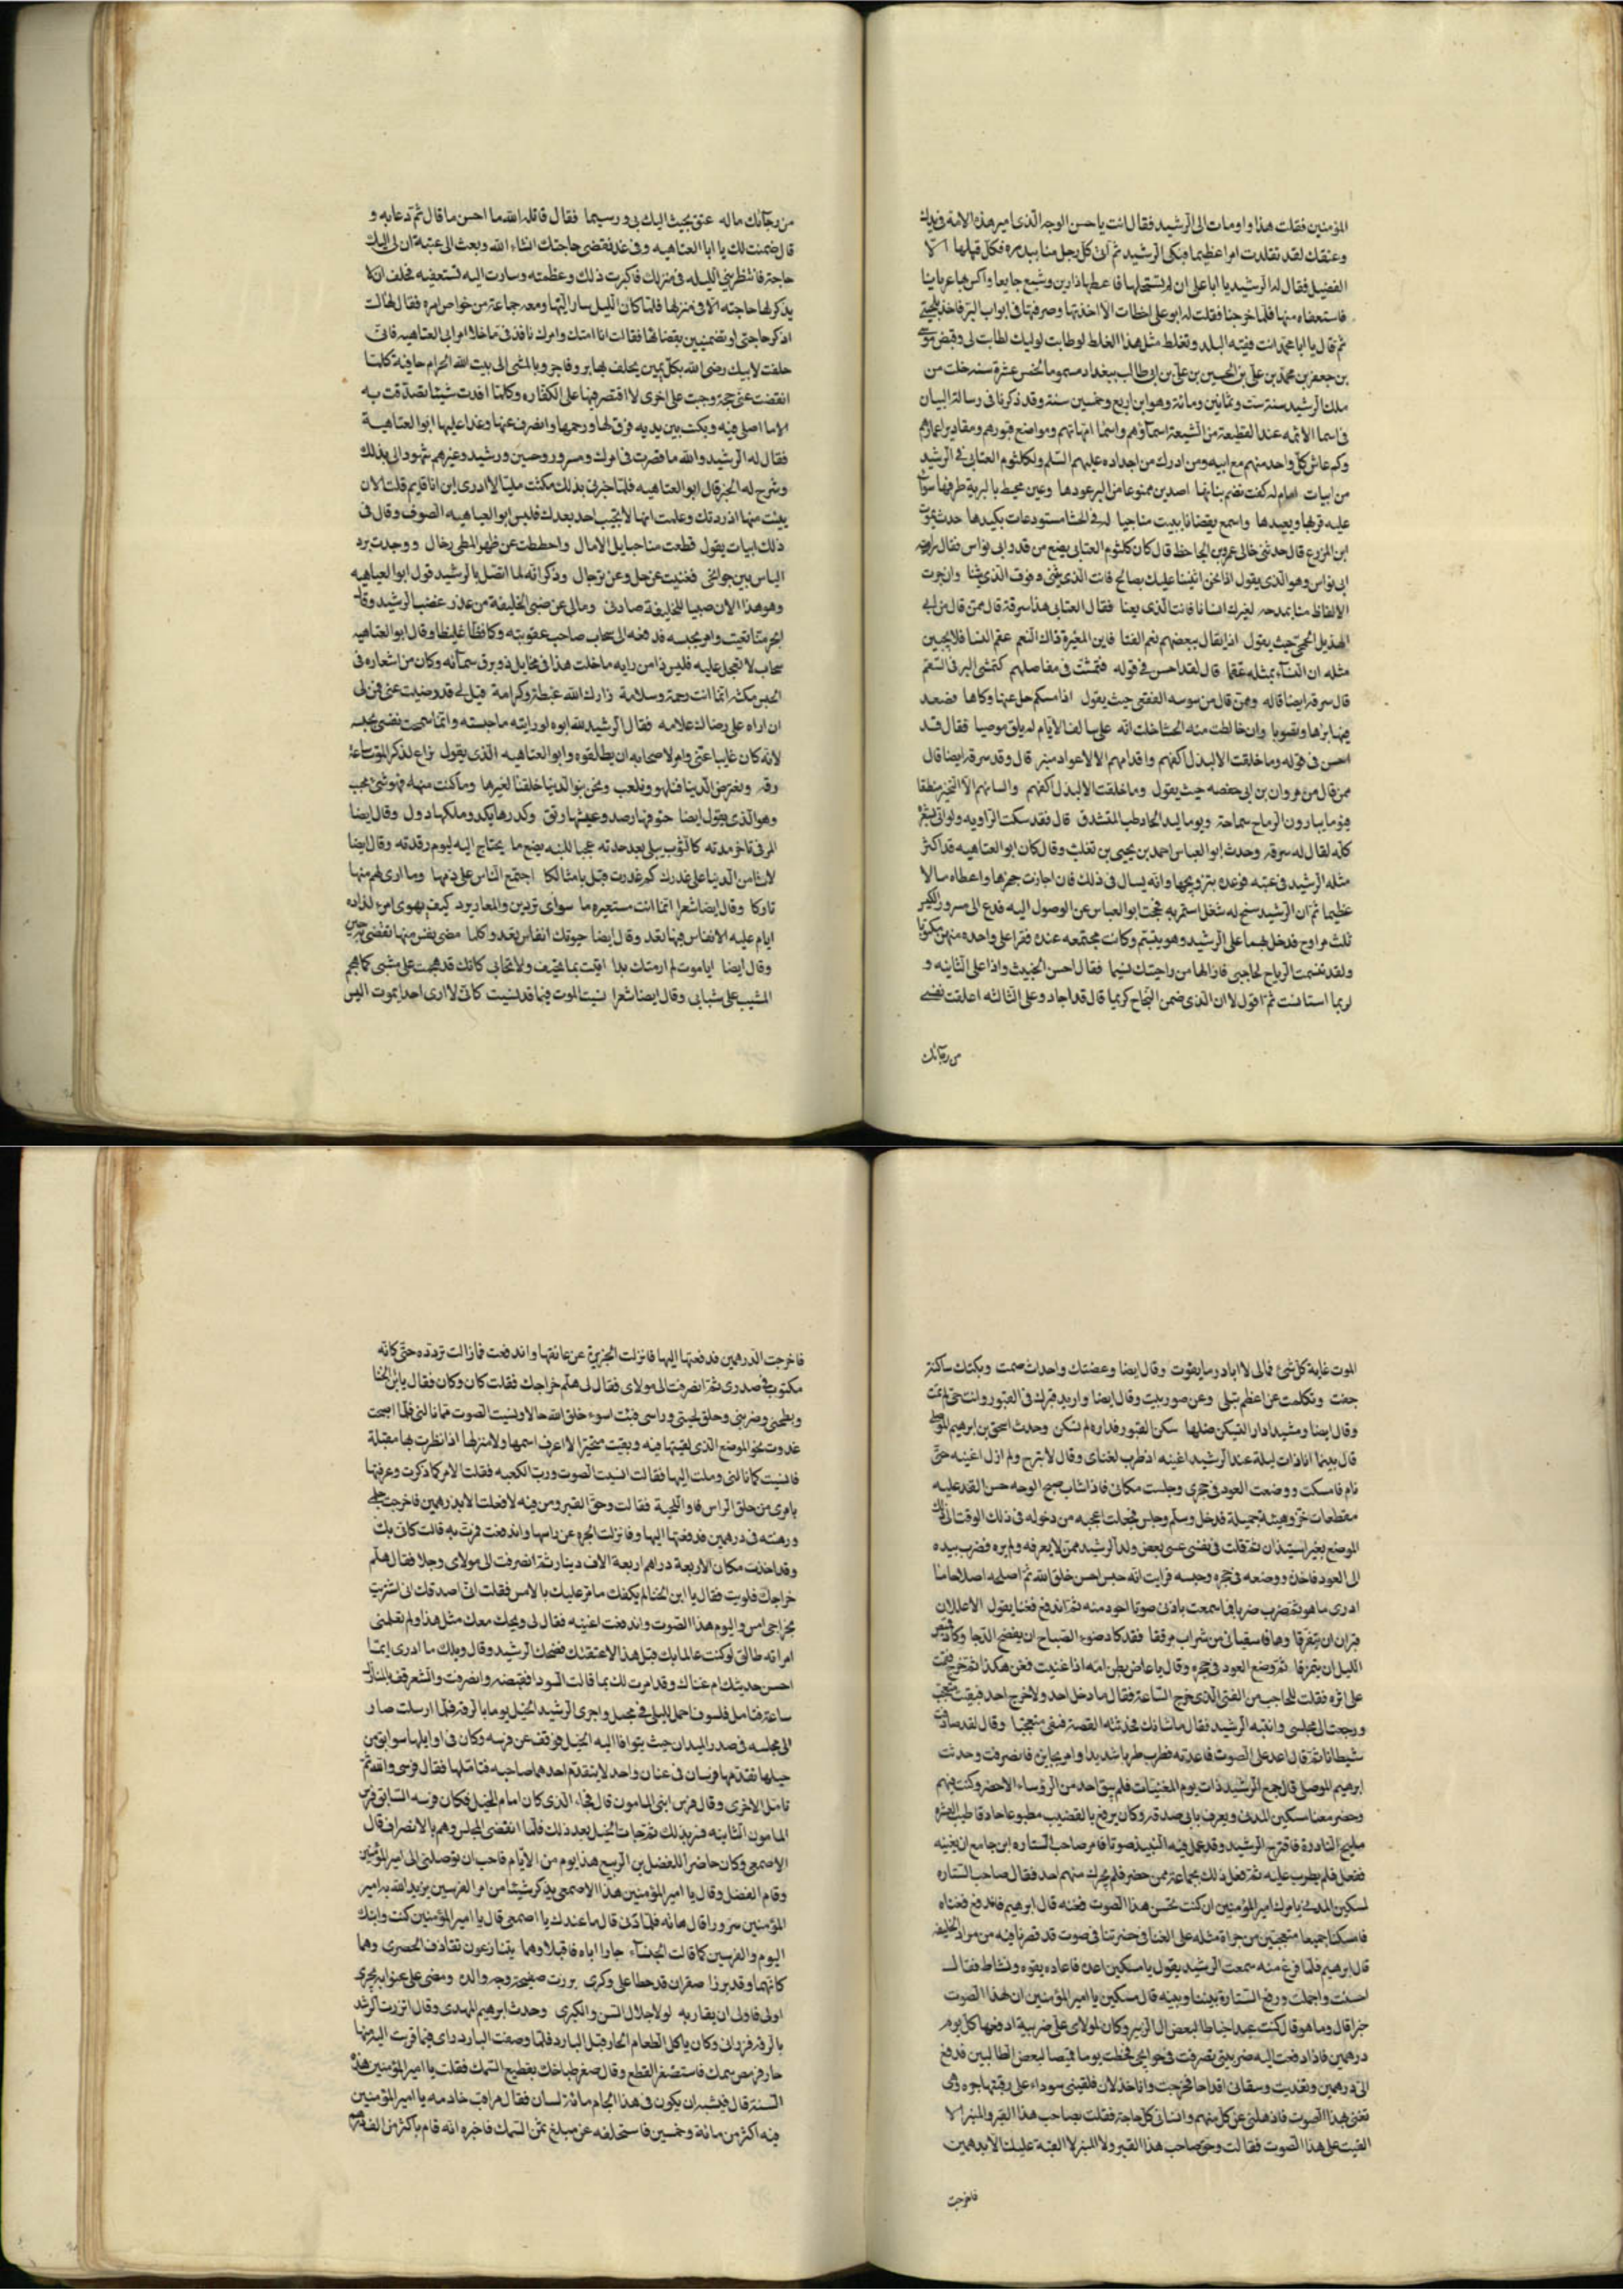 المؤمنين فقلت هذا واومات الى الرشيد فقال انت يا حسن الوجه الذى امر هذه الامة فى يدك
وعنقك لقد تقلدت امرا عظيما فبكى الرشيد ثم اتى كل رجل منا ببدره فكل قبلها الا
الفضيل فقال له الرشيد يا ابا على ان لم تستحلها فاعطها ذا دين وشبع جايعا واكس بها عريانا
فاستعفاه منها فلما خرجنا فقلت له يا ابو على اخطات الا اخذتها وصرفتها فى ابواب البر فاخذ بلحيتى
ثم قال يا ابا محمد انت فقيه البلد وتغلط مثل هذا الغلط لو طابت لوليك لطابت لى وقبض موسى
بن جعفر بن محمد بن على بن الحسين بن على بن ابى طالب ببغداد مسموما لخمس عشرة سنه خلت من
ملك الرشيد سنة ست وثمانين ومائة وهو ابن اربع وخمسين سنة وقد ذكرنا فى رسالة البيان
فى اسما الائمه عند القطيعة من الشيعة اسماؤهم واسما امهاتهم ومواضع قبورهم ومقادير اعمارهم
وكم عاش كل واحد منهم مع ابيه ومن ادرك من اجداده عليهم السلم ولكلثوم العتابى فى الرشيد
من ابيات امام له كفت تضم بنانها اصدين ممنوعا من البر عودها وعين محيط بالبرية طرفها سواء
عليه قربها وبعيدها واسمع يقضانا يبيت مناجيا له فى الحشا مستودعات يكيدها حدث يموت
ابن المزرع قال حدثنى خالى عمرو بن الجاحظ قال كان كلثوم العتابى يضع من قدر ابى نواس فقال راويه
ابى نواس وهو الذى يقول اذا نحن اثنينا عليك بصالح فانت الذى نثنى وفوق الذى نثنا وان جرت
الالفاظ منا بمدحه لغيرك انسانا فانت الذى يعنا فقال العتابى هذا سرقة قال ممن قال من ابى
الهذيل الجمحى حيث يقول اذا يقال ببعضهم نعم الفتا فابن المغيرة ذاك النعم عقم النسا فلا يجبين
مثله ان النساء بمثله عقما قال لقد احسن فى قوله فتمشت فى مفاصلهم كتمشى البر فى السقم
قال سرقه ايضا قاله وممن قال من سوسه الفقعسى حيث يقول اذا ما سكم حل عنها وكاها فصعد
احسن فى قوله وما خلقت الا لبذل اكفهم واقدامهم الا لاعواد منبر قال وقد سرقه ايضا قال
ممن قال من مروان بن ابى حفصه حيث يقول وما خلقت الا لبذل اكفهم والسانهم الا لتخير منطقا
فيوما يبارون الرماح سماحة ويوما لبذل الخاطب المتشدق قال فقد سكت الراويه ولو اتى بشعره
كله لقال له سرقه وحدث ابو العباس احمد بن يحيى بن ثعلب وقال كان ابو العتاهيه قد اكثر
مثله الرشيد فى عتبه فوعده بتزويجها وانه يسال فى ذلك فان اجازت جهزها واعطاه مالا
عظيما ثم ان الرشيد سنح له شغل استمر به فحجب ابو العباس عن الوصول اليه فدع الى مسرور الكبير
ثلث مراوح فدخل بهما على الرشيد وهو يتبسم وكانت مجتمعه عنده فقرا على واحده منهن مكتوبا
ولقد تنسمت الرياح لحاجتى فاذا لها من راحتك نسيما فقال احسن الخبيث واذا على الثانيه و
لربما استايست ثم اقول لا ان الذى ضمن النجاح كريما قال قد اجاد وعلى الثالثه اعلقت نفسى
من رجائك
من رجائك ماله عنق يحث اليك بى ورسيما فقال قاتله الله ما احسن ما قال ثم دعا به و
قال ضمنت لك يا ابا العتاهيه وفى غد نقضى حاجتك انشاء الله وبعث الى عتبة ان لى اليك
حاجة فانتظرينى الليله فى منزلك فاكبرت ذلك وعظمته وسارت اليه تستعفيه فحلف ان لا
يذكر لها حاجته الا فى منزلها فلما كان الليل سار اليها ومعه جماعة من خواص امره فقال لها لست
اذكر حاجتى او تضمنين بقضائها فقالت انا امتك وامرك نافذ فى ما خلا امر ابى العتاهيه فانى
حلفت لابيك رضى الله بكل يمين يحلف بها بر وفاجر وبالمشى الى بيت الله الحرام حافية كلما
انقضت عنى حجة وجبت على اخرى لا اقتصر فيها على الكفاره وكلما افدت شيئا تصدقت به
الا ما اصلى فيه وبكت بين يديه فرق لها ورحمها وانصرف عنها وغدا عليها ابو العتاهيه
فقال له الرشيد والله ما قصرت فى امرك ومسرور وحسين ورشيد وغيرهم شهود لى بذلك
وشرح له الخبر قال ابو العتاهيه فلما اخبرنى بذلك مكثت مليا لا ادرى اين انا قايم قلت الان
يئست منها اذ ردتك وعلمت انها لا تجيب احد بعدك فلبس ابو العتاهيه الصوف وقال فى
ذلك ابيات يقول قطعت منا حبايل الامال واحططت عن ظهر المطى رحال ووجدت برد
الياس بين جوانحى فغنيت عن حل وعن ترحال وذكر انه لما اتصل بالرشيد قول ابو العتاهيه
وهو هذا الان صبيا للخليفة صادنى ومالى عن صبى الخليفة من عذر غضب الرشيد وقال
سحاب لا تعجل عليه فليس ذا من رايه ما خلت هذا فى مخايل ذو برق سمائه وكان من اشعاره فى
الحبس مكثه انما انت رحمة وسلامة زادك الله غبطة وكرامة قيل لى قد رضيت عنى فمن لى
ان اراه على رضاك علامه فقال الرشيد لله ابوه لو رايته ما حبسته وانما سمحت نفسى بحبسه
لانه كان غايبا عنى وامر لاصحابه ان يطلقوه وابو العتاهيه الذى يقول نراع لذكر الموت ساعة
وقال ايضا حتوفها رصد وعيشها رنق وكدرها يكد وملكها دول وقال ايضا
المر فى تاخر مدته كالثوب يبلى بعد جدته عجبا لمنتبه يضيع ما يحتاج اليه ليوم رقدته وقال ايضا
لا تامن الدنيا على غدرك كم غدرت قبل بامثالكا اجتمع الناس على ذمها وما ارى لهم منها
تاركا وقال ايضا شعرا انما انت مستعيره ما سواى تردين والمعار يرد كيف يهوى امرء لذاذه
ايام عليه الانفاس فيها تعد وقال ايضا حيوتك انفاس تعد وكلما مضى نفس منها نقضى به جزء
وقال ايضا ايا موت لم ار منك بدا اتيت بما تحيف ولا تحابى كانك قد هجمت على مشيبى كما هجم
المشيب على شبابى وقال ايضا شعرا نسيت الموت فيما قد نسيت كانى لا ارى احدا يموت اليس
الموت غاية كل شئ فمالى لا ابادر ما يفوت وقال ايضا وعضتك واحداث صمت وبكتك ساكنة
جفت وتكلمت عن اعظم تبلى وعن صور بيت وقال ايضا وارينك قبرك فى القبور وانت حى لم تمت
وقال ايضا ومشيد دارا ليسكن ظلها سكن القبور فداره لم تسكن وحدث اسحق بن ابرهيم الموصلى
قال بينما انا ذات ليلة عند الرشيد اغنيه اذ طرب لغناى وقال لا تبرح ولم ازل اغنيه حتى
نام فامسكت ووضعت العود فى حجرى وجلست مكانى فاذا شاب صبيح الوجه حسن القد عليه
مقطعات خز وهيئة جميلة فدخل وسلم وجلس فجعلت اعجبه من دخوله فى ذلك الوقت الى ذلك
الموضع بغير استيذان ثم قلت فى نفسى عسى بعض ولد الرشيد ممن لا يعرفه ولم يره فضرب بيده
الى العود فاخذه ووضعه فى حجره وجسه فرايت انه جس احسن خلق الله ثم اصلحه اصلاحا ما
ادرى ما هو ثم ضرب ضربا فما سمعت باذنى صوتا اجود منه ثم اندفع فغنا يقول الا عللانى
قبل ان نتفرقا وهاتا اسقيانى من شراب مروقا فقد كاد ضوء الصباح ان يفضح الدجا وكاد قميص
الليل ان يتمزقا ثم وضع العود فى حجره وقال يا عاض بظر امه اذا غنيت فغن هكذا ثم خرج فقمت
على اثره فقلت للحاجب من الفتى الذى خرج الساعة فقال ما دخل احد ولا خرج احد فبقيت متعجب
ورجعت الى مجلسى وانتبه الرشيد فقال ما شانك فحدثته القصة فبقى متعجبا وقال لقد صادفت
شيطانا ثم قال اعد على الصوت فاعدته فطرب طربا شديدا وامر بجايزة فانصرفت وحدثت
ابرهيم الموصلى قال جمع الرشيد ذات يوم المغنيات فلم يبق احد من الرؤساء الا حضر وكنت فيهم
وحضر معنا مسكين المدنى ويعرف بابى صدقة وكان يرفع بالقضيب مطبوعا حاذقا طيب العشرة
مليح النادرة فاقترح الرشيد وقد عمل فيه النبيذ صوتا فامر صاحب الستاره ابن جامع ان يغنيه
ففعل فلم يطرب عليه ثم فعل ذلك بجماعة ممن حضر فلم يحرك منهم احد فقال صاحب الستاره
لمسكين المدنى يامرك امير المؤمنين ان كنت تحسن هذا الصوت فغنه قال ابرهيم فاندفع فغناه
فامسكنا جميعا متعجبين من جراة مثله على الغنا فى حضرتنا فى صوت قد قصرنا فيه من مراد الخليفه
قال ابرهيم فلما فرغ منه سمعت الرشيد يقول يا مسكين اعده فاعاده بقوه ونشاط فقال
احسنت واجملت ورفع الستارة بيننا وبينه قال مسكين يا امير المؤمنين ان لهذا الصوت
خبرا قال وما هو قال كنت عبدا خياطا لبعض ال الزبير وكان لمولاى على ضريبة ادفعها كل يوم
درهمين فاذا دفعت اليه ضريبتى تصرفت فى حوايجى فخطت يوما قميصا لبعض الطالبين فدفع
الى درهمين وتغديت وسقانى اقداحا فخرجت وانا جذلان فلقيتنى سوداء على رقبتها جره وهى
تغنى بهذا الصوت فاذهلنى عن كل منهم وانسانى كل حاجة فقلت بصاحب هذا القبر والمنبر الا
القيت على هذا الصوت فقالت وحق صاحب هذا القبر ولا المنبر لا القيه عليك الا بدرهمين
فاخرجت
فاخرجت الدرهمين فدفعتها اليها فانزلت الجره عن عاتقها واندفعت فما زالت تردده حتى كانه
مكتوب فى صدرى ثم انصرفت الى مولاى فقال لى هلم خراجك فقلت كان وكان فقال يا ابن الخنا
وبطحنى وضربنى وحلق لحيتى وراسى فبت اسوء خلق الله حالا ونسيت الصوت مما نالنى فلما اصبحت
غدوت نحو الموضع الذى لقيتها فيه وبقيت متحيرا لا اعرف اسمها ولا منزلها اذ نظرت بها مقبلة
فانسيت كلما نالنى وملت اليها فقالت انسيت الصوت ورب الكعبه فقلت الامر كما ذكرت وعرفتها
بامرى من حلق الراس واللحية فقالت وحق القبر ومن فيه لا فعلت الا بدرهمين فاخرجت جلمى
ورهنته فى درهمين فدفعتها اليها وانزلت الجره عن راسها واندفعت فمرت به قالت كانى بك
وقد اخذت مكان الاربعة دراهم اربعة الاف دينار ثم انصرفت الى مولاى وجلا فقال هلم
خراجك فلويت فقال يا ابن الخنا لم يكفك ما مر عليك بالامس فقلت انى اصدقك انى اشتريت
بخراجى امس واليوم هذا الصوت واندفعت اغنيه فقال لى ويحك معك مثل هذا ولم تعلمنى
امراته طالق لو كنت عالما بك قبل هذا لاعتقتك فضحك الرشيد وقال ويلك ما ادرى ايما
احسن حديثك ام غناك وقد امرت لك بما قالت السودا فقبضه وانصرفت والشعر قف بالمنازل
ساعة فتامل فلسوف احمل للبلى فى محمل واجرى الرشيد الخيل يوما بالرقة فلما ارسلت صار
الى مجلسه فى صدر الميدان حيث توافا اليه الخيل فوقف عن فرسه وكان فى اوايلها سوابق من
خيلها تقدمها فرسان فى عنان واحد لا يتقدم احدهما صاحبه فتاملها فقال فرسى والله ثم
تامل الاخرى وقال فرس ابنى المامون قال فجاء الذى كان امام الخيل فكان فرسه السابق فرس
المامون الثانيه فسر بذلك ثم جات الخيل بعد ذلك فلما انقضى المجلس وهم بالانصراف قال
الاصمعى وكان حاضرا للفضل بن الربيع هذا يوم من الايام فاحب ان توصلنى الى امير المؤمنين
وقام الفضل وقال يا امير المؤمنين هذا الاصمعى يذكر شيئا من امر الفرسين يزيد الله به امير
المؤمنين سرورا قال هاته فلما دنى قال ما عندك يا اصمعى قال يا امير المؤمنين كنت وابنك
اليوم والفرسين كما قالت الخنساء جارا اباه فاقبلا وهما يتنازعون تقاذف الحضرى وهما
كانهما وقد برزا صقران قد حطا على وكرى برزت صفيحة وجه والده ومضى على غوايه يجرى
اولى فاولى ان يقاربه لولا جلال السن والكبرى وحدث ابرهيم المهدى وقال اتزرت الرشيد
بالرقة فزارنى وكان ياكل الطعام الحار قبل البارد فلما وضعت البارد راى فيما قربت اليه منها
جام قريص سمك فاستصغر القطع وقال صغر طباخك بقطيع السمك فقلت يا امير المؤمنين هذه
السنة قال فيشبه ان يكون فى هذا الجام مائة لسان فقال مراقب خادمه يا امير المؤمنين
فيه اكثر من مائة وخمسين فاستحلفه عن مبلغ ثمن السمك فاخبره انه قام باكثر من الف درهم